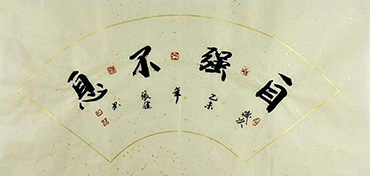 自强不息
乙未
年
书